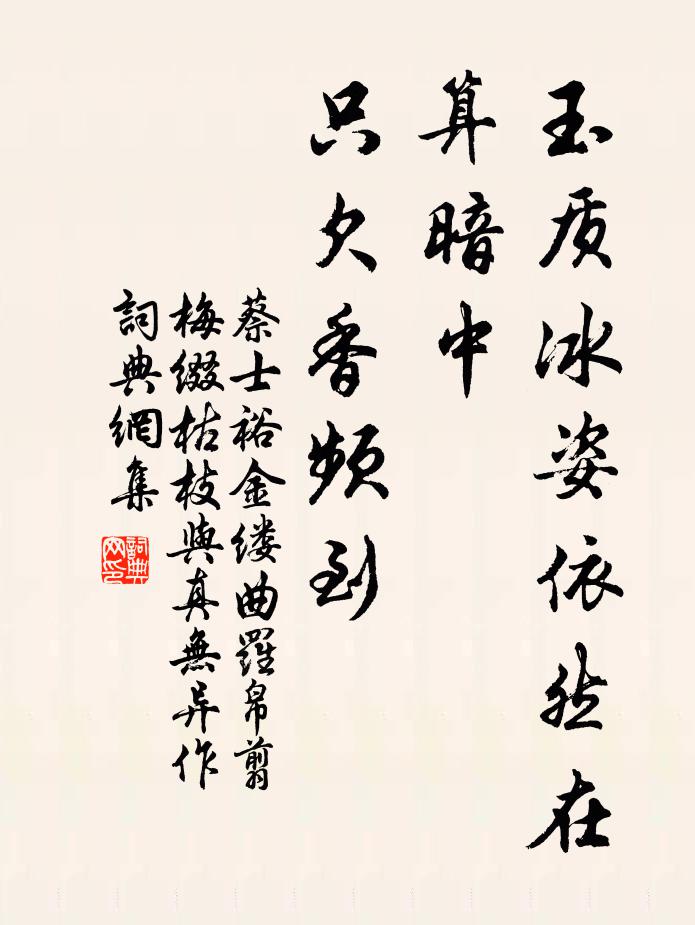 玉质冰姿依然在
算暗中
只欠香频到
蔡士裕金缕曲羅帛翦
梅缀枯枝與真無异作
詞典網集
詞典网印